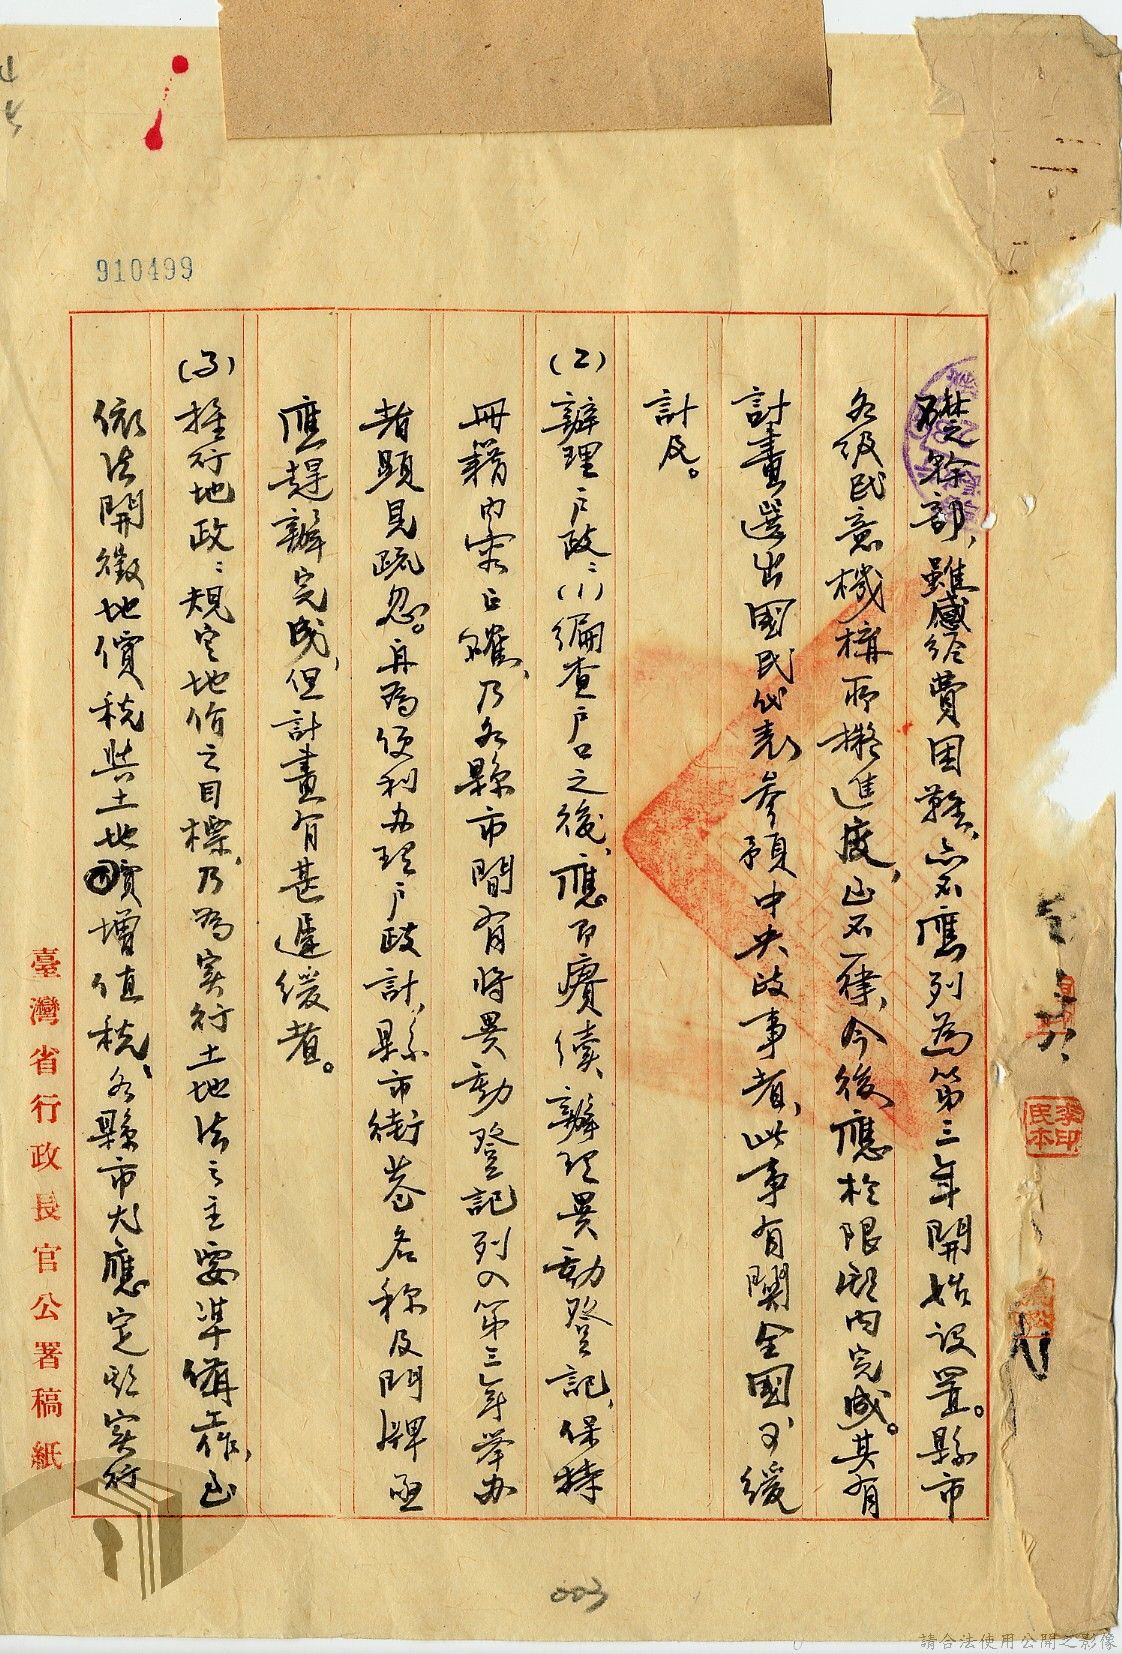 910499
礎之幹部，雖感給費困難，亦不應列為第三年開始設置。縣市
各級民意機構所擬進度，亦不一律，今後應於限期內完成。其有
計畫選出國民代表參預中央政事者，此事有關全國可緩
計及。
(2)辦理戶政：(1)編查戶口之後，應即賡續辦理異動登記，保持
冊籍內容正確，乃各縣市間有將異動登記列入第三年舉办
者顯見疏忽。再為便利办理戶政計，縣市街巷名称及門牌亟
應趕辦完成，但計畫有甚遲緩者。
(3)推行地政：規定地价之目標，乃為実行土地法之主要準備工作，
依法開徵地價稅與土地增值稅，各縣市尤應定期实行
臺灣省行政長官公署稿紙
李印民本
003
請合法使用公開之影像